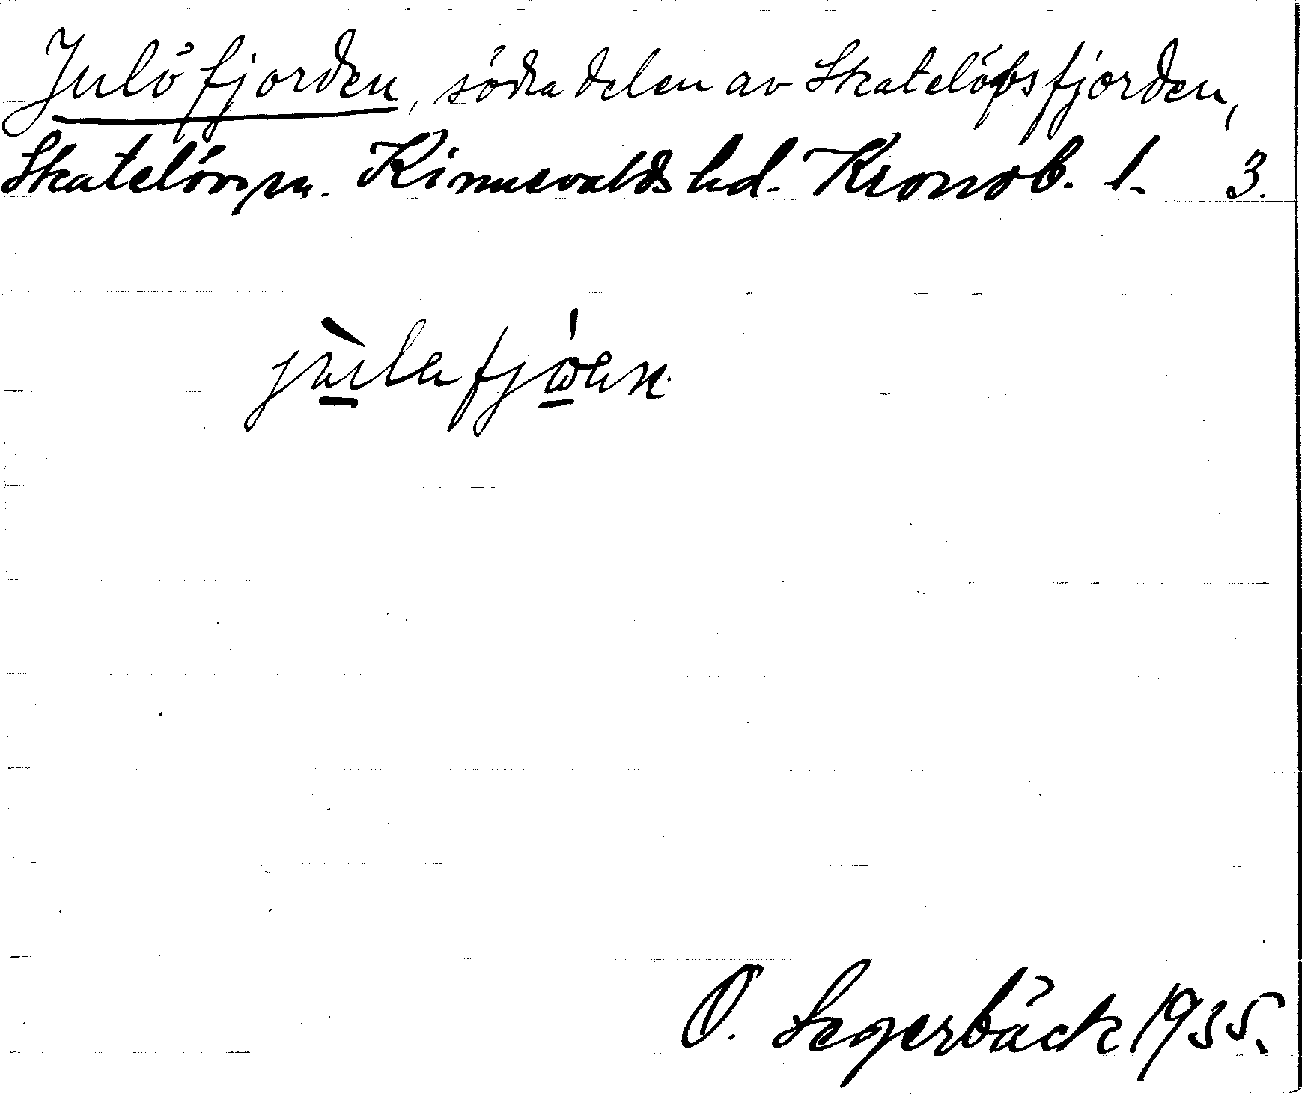 Julöfjorden, södra delen av Skatelöfsfjorden,
Skatelövs sn. Kinnevalds hd. Kronob. l. 3.
O. Segerbäck 1935.